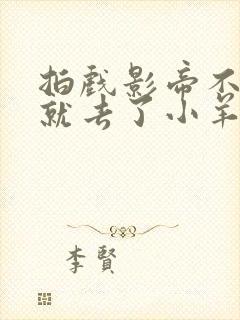 拍戏影帝不
就去了小羊
李贤